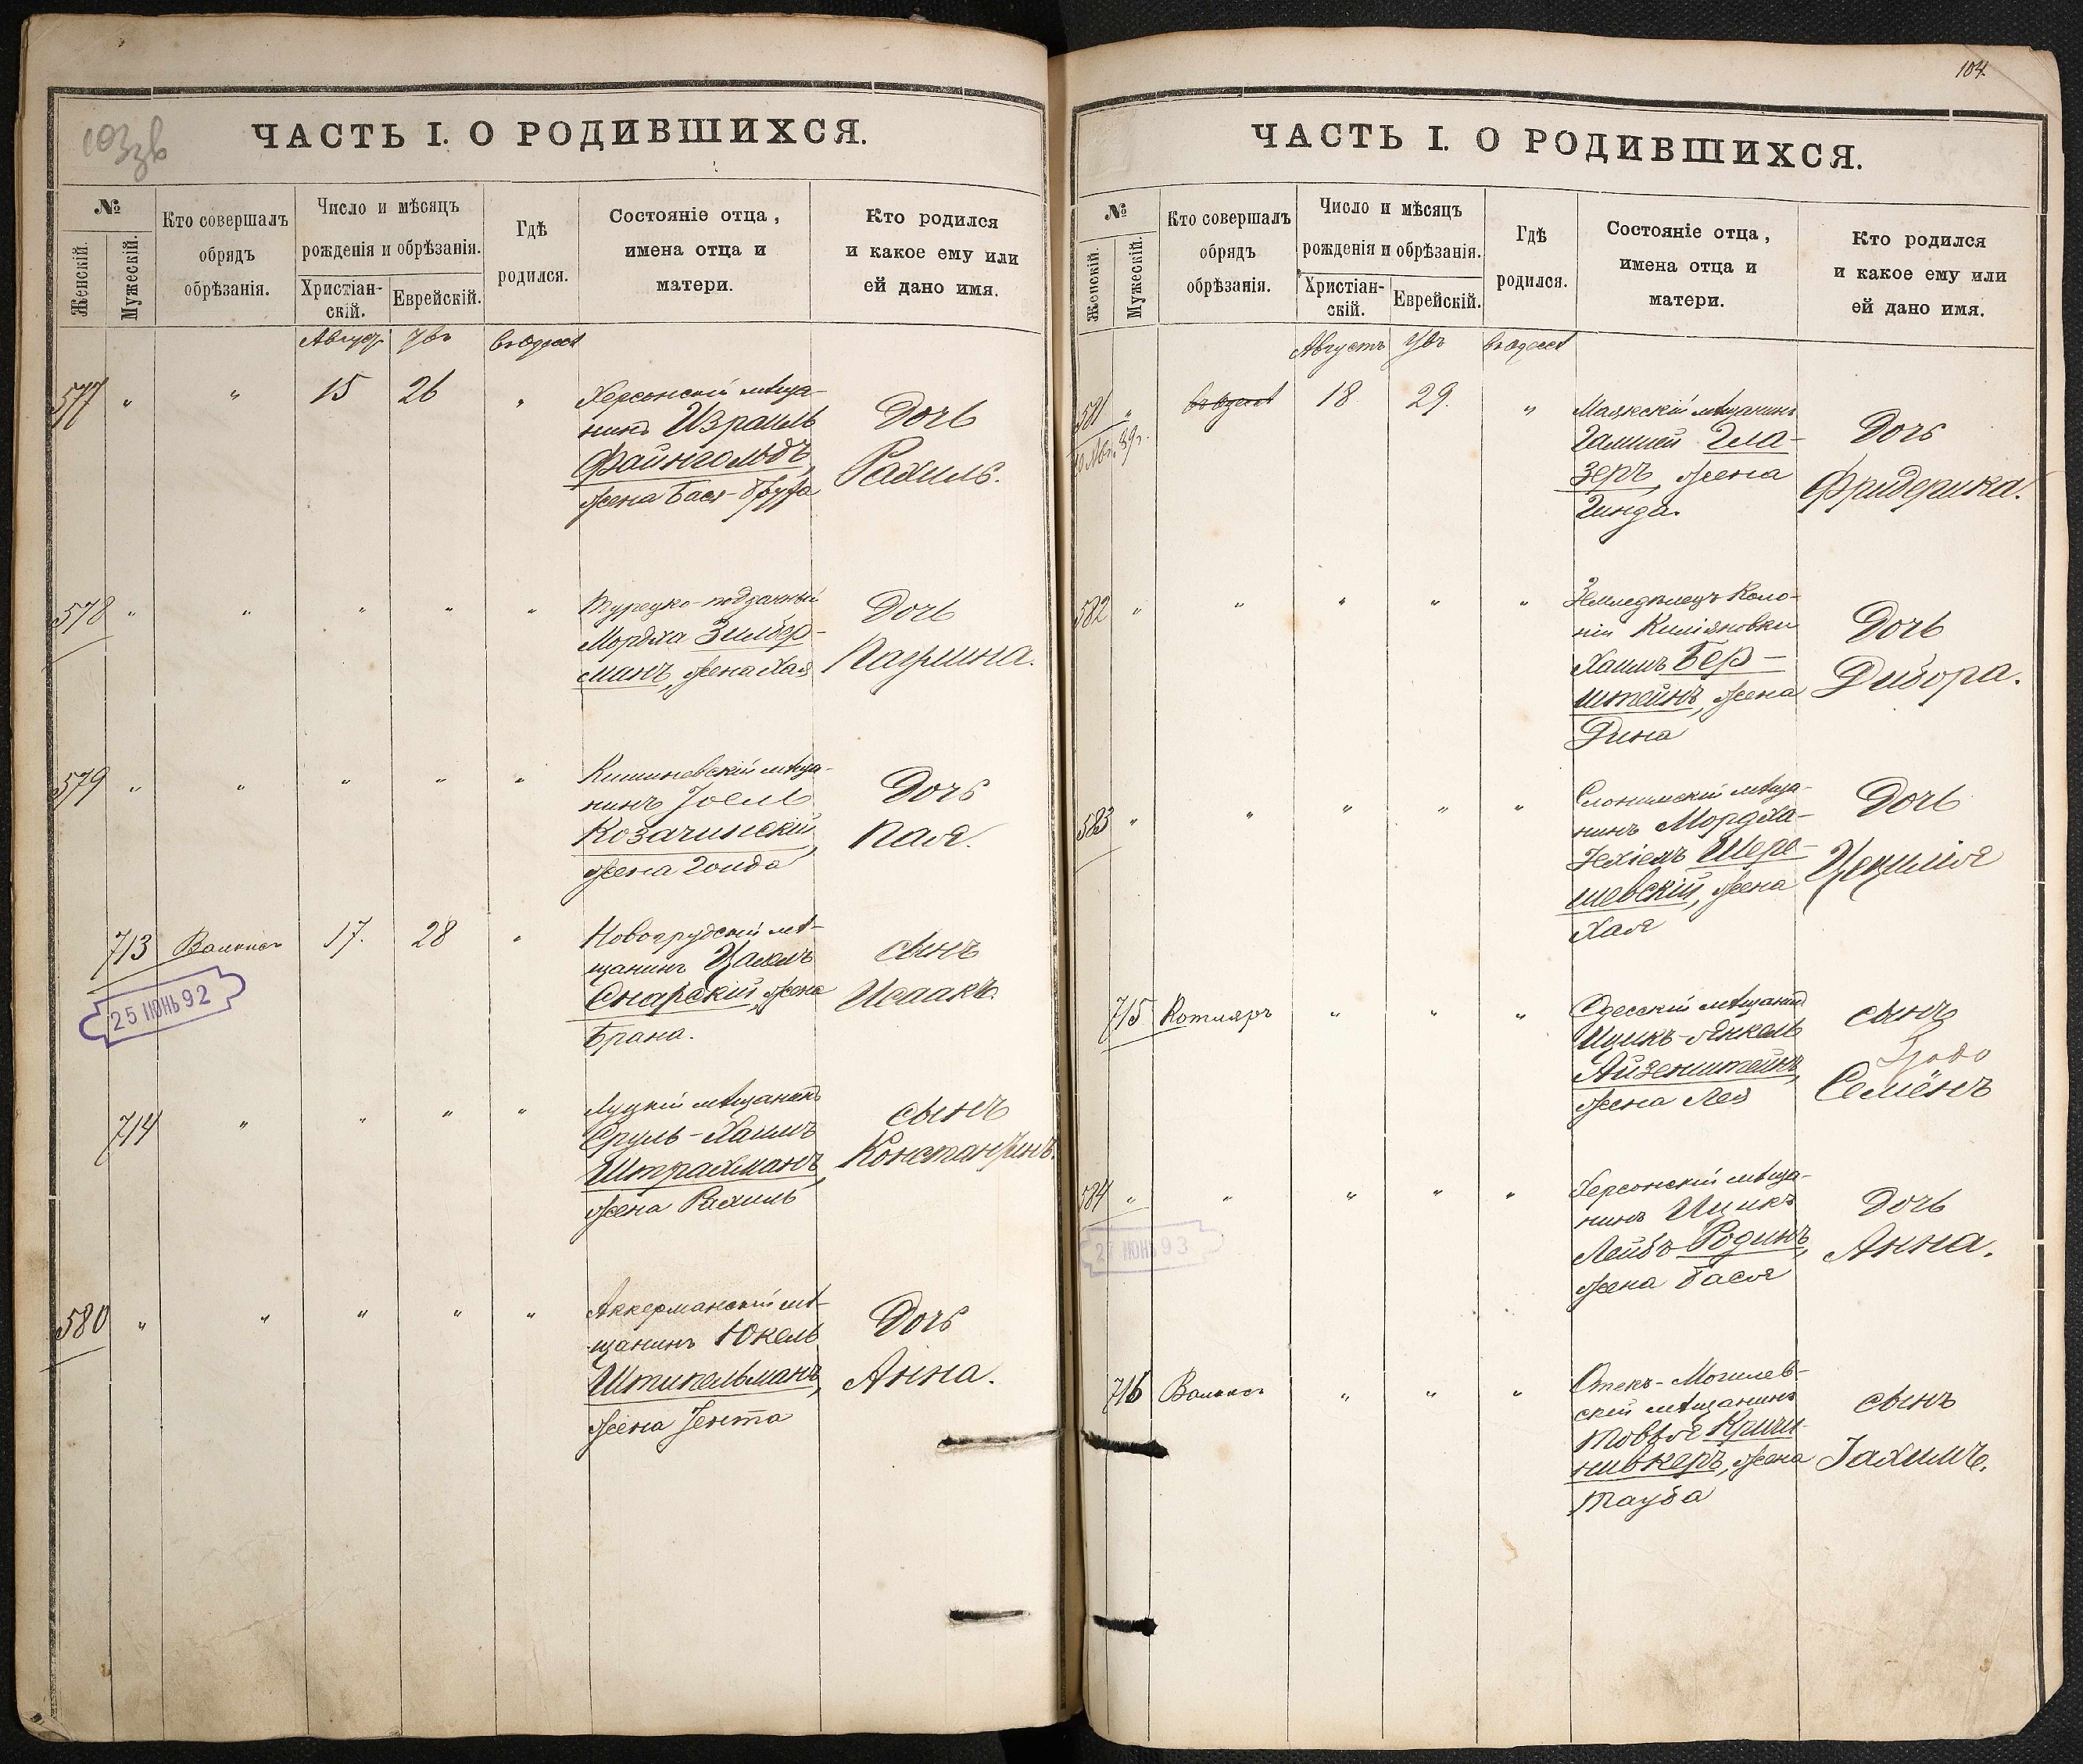 103 зв
ЧАСТЬ I. О РОДИВШИХСЯ.
№
Женскій.
Мужескій.
Кто совершалъ
обрядъ
обрѣзанія.
Число и мѣсяцъ
рожденія и обрѣзанія.
Христіан-
скій.
Еврейскій.
Гдѣ
родился.
Состояніе отца,
имена отца и
матери.
Кто родился
и какое ему или
ей дано имя.
577 " " 15 26 "
Херсонскій мѣща-
нинъ Израиль
Файнгольдъ,
жена Бася-
Дочь
Рахиль.
578 " " " " "
Турецко-подданный
Мордха Зильбер-
манъ, жена Хая
Дочь
579 " " " " "
Кишиневскій мѣща-
нинъ Іоель
Козачинскій,
жена Голда
Дочь
Пая.
713 17. 28 "
25 ІЮНЬ 92
Новогрудскій мѣ-
щанинъ
жена
Брана.
сынъ
Исаакъ.
714 " " " "
Луцкій мѣщанинъ
Сруль-Хаимъ
Штрахманъ,
жена Рахиль
сынъ
Константинъ.
580 " " " " "
Аккерманскій мѣ-
щанинъ Юкель
Штикельманъ,
жена Іента
Дочь
Анна.
104.
ЧАСТЬ I. О РОДИВШИХСЯ.
№
Женскій.
Мужескій.
Кто совершалъ
обрядъ
обрѣзанія.
Число и мѣсяцъ
рожденія и обрѣзанія.
Христіан-
скій.
Еврейскій.
Гдѣ
родился.
Состояніе отца,
имена отца и
матери.
Кто родился
и какое ему или
ей дано имя.
Августъ
581 " 18 29. "
Маякскій мѣщанинъ
Гла-
зеръ, жена
Гинда.
Дочь
Фридерика.
582 " " " " "
Земледѣлецъ Коло-
ніи
Хаимъ Бер-
штейнъ, жена
Дина
Дочь
Дибора.
583 " " " " "
Слонимскій мѣща-
нинъ Мордха-
Іехіелъ Шере-
шевскій, жена
Хая
Дочь
Цецилія
715 Котляръ " " "
Одесскій мѣщанинъ
Ицикъ-Янкель
Айзенштейнъ,
жена Лея
сынъ
Семёнъ
584 " " " " "
27 ІЮНЬ 93
Херсонскій мѣща-
нинъ Ицикъ
Лейбъ Родинъ,
жена Бася
Дочь
Анна.
716 " " "
Могилев-
скій мѣщанинъ
Товія Кричи-
нивкеръ, жена
Тауба
сынъ
Іахимъ.